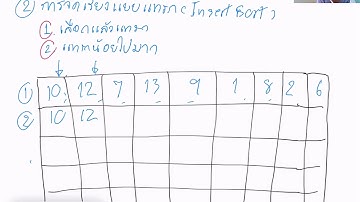 ② การจัดเรียงแบบแทรก (Insert Sort)
① เลือกแล้วแทรก
② แทรกน้อยไปมาก
① 10 12 7 13 9 1 8 2 6
② 10 12